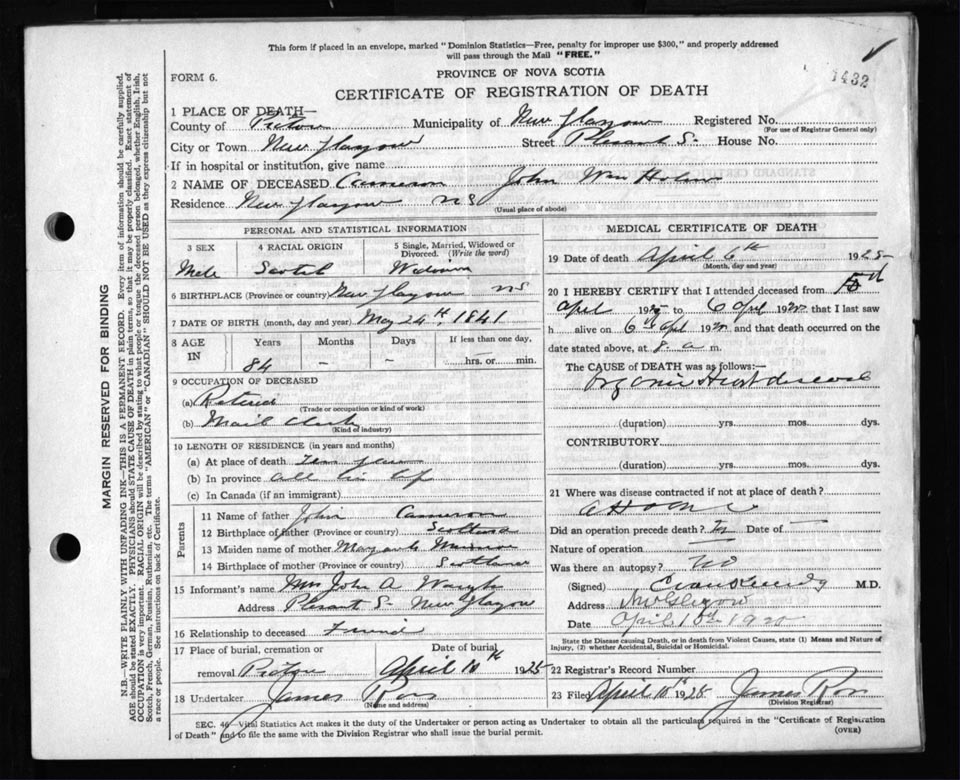 This form if placed in an envelope, marked "Dominion Statistics—Free, penalty for improper use $300," and properly addressed
will pass through the Mail "FREE."
1432
FORM 6.
PROVINCE OF NOVA SCOTIA
CERTIFICATE OF REGISTRATION OF DEATH
1 PLACE OF DEATH—
County of Pictou Municipality of New Glasgow Registered No.
(For use of Registrar General only)
City or Town New Glasgow Street Plesant S- House No.
If in hospital or institution, give name
2 NAME OF DECEASED Cameron John Wm
Residence New Glasgow NS
(Usual place of abode)
PERSONAL AND STATISTICAL INFORMATION
3 SEX 4 RACIAL ORIGIN 5 Single, Married, Widowed or Divorced. (Write the word)
Male Scotch
6 BIRTHPLACE (Province or country) New Glasgow NS
7 DATE OF BIRTH (month, day and year) May 24th, 1841
8 AGE IN Years Months Days If less than one day,
84 — — hrs. or min.
9 OCCUPATION OF DECEASED
(a) Retired
(Trade or occupation or kind of work)
(b) Mail Clerk
(Kind of industry)
10 LENGTH OF RESIDENCE (in years and months)
(a) At place of death Ten years
(b) In province all his life
(c) In Canada (if an immigrant)
Parents
11 Name of father John Cameron
12 Birthplace of father (Province or country) Scotland
13 Maiden name of mother Margaret Munro
14 Birthplace of mother (Province or country) Scotland
15 Informant's name Mrs John A
Address Plesant S- New Glasgow
16 Relationship to deceased Friend
17 Place of burial, cremation or removal Date of burial
Pictou April 10th 1925
18 Undertaker James Ross
(Name and address)
MEDICAL CERTIFICATE OF DEATH
19 Date of death April 6th 1925
(Month, day and year)
20 I HEREBY CERTIFY that I attended deceased from
April 1925 to 6 April 192 that I last saw
h alive on 6th April 192 , and that death occurred on the
date stated above, at 8 a m.
The CAUSE OF DEATH was as follows:—
Organic Heart disease
(duration) yrs. mos. dys.
CONTRIBUTORY
(duration) yrs. mos. dys.
21 Where was disease contracted if not at place of death?
at Home
Did an operation precede death? Date of —
Nature of operation —
Was there an autopsy? No
(Signed) Evan Kennedy M.D.
Address New Glasgow
Date April 192
State the Disease causing Death, or in death from Violent Causes, state (1) Means and Nature of
Injury, (2) whether Accidental, Suicidal or Homicidal.
22 Registrar's Record Number
23 Filed April 10th 1925 James Ross
(Division Registrar)
SEC. 46 Vital Statistics Act makes it the duty of the Undertaker or person acting as Undertaker to obtain all the particulars required in the "Certificate of Registration
of Death" and to file the same with the Division Registrar who shall issue the burial permit.
(OVER)
MARGIN RESERVED FOR BINDING
N.B.—WRITE PLAINLY WITH UNFADING INK—THIS IS A PERMANENT RECORD. Every item of information should be carefully supplied.
AGE should be stated EXACTLY. PHYSICIANS should STATE CAUSE OF DEATH in plain terms, so that it may be properly classified. Exact statement of
OCCUPATION is very important. RACIAL ORIGIN will be described by stating to what people or tongue the deceased person belonged, whether English, Irish,
Scotch, French, German, Russian, Ruthenian, etc. The terms "AMERICAN" or "CANADIAN" SHOULD NOT BE USED as they express citizenship but not
a race or people. See instructions on back of Certificate.